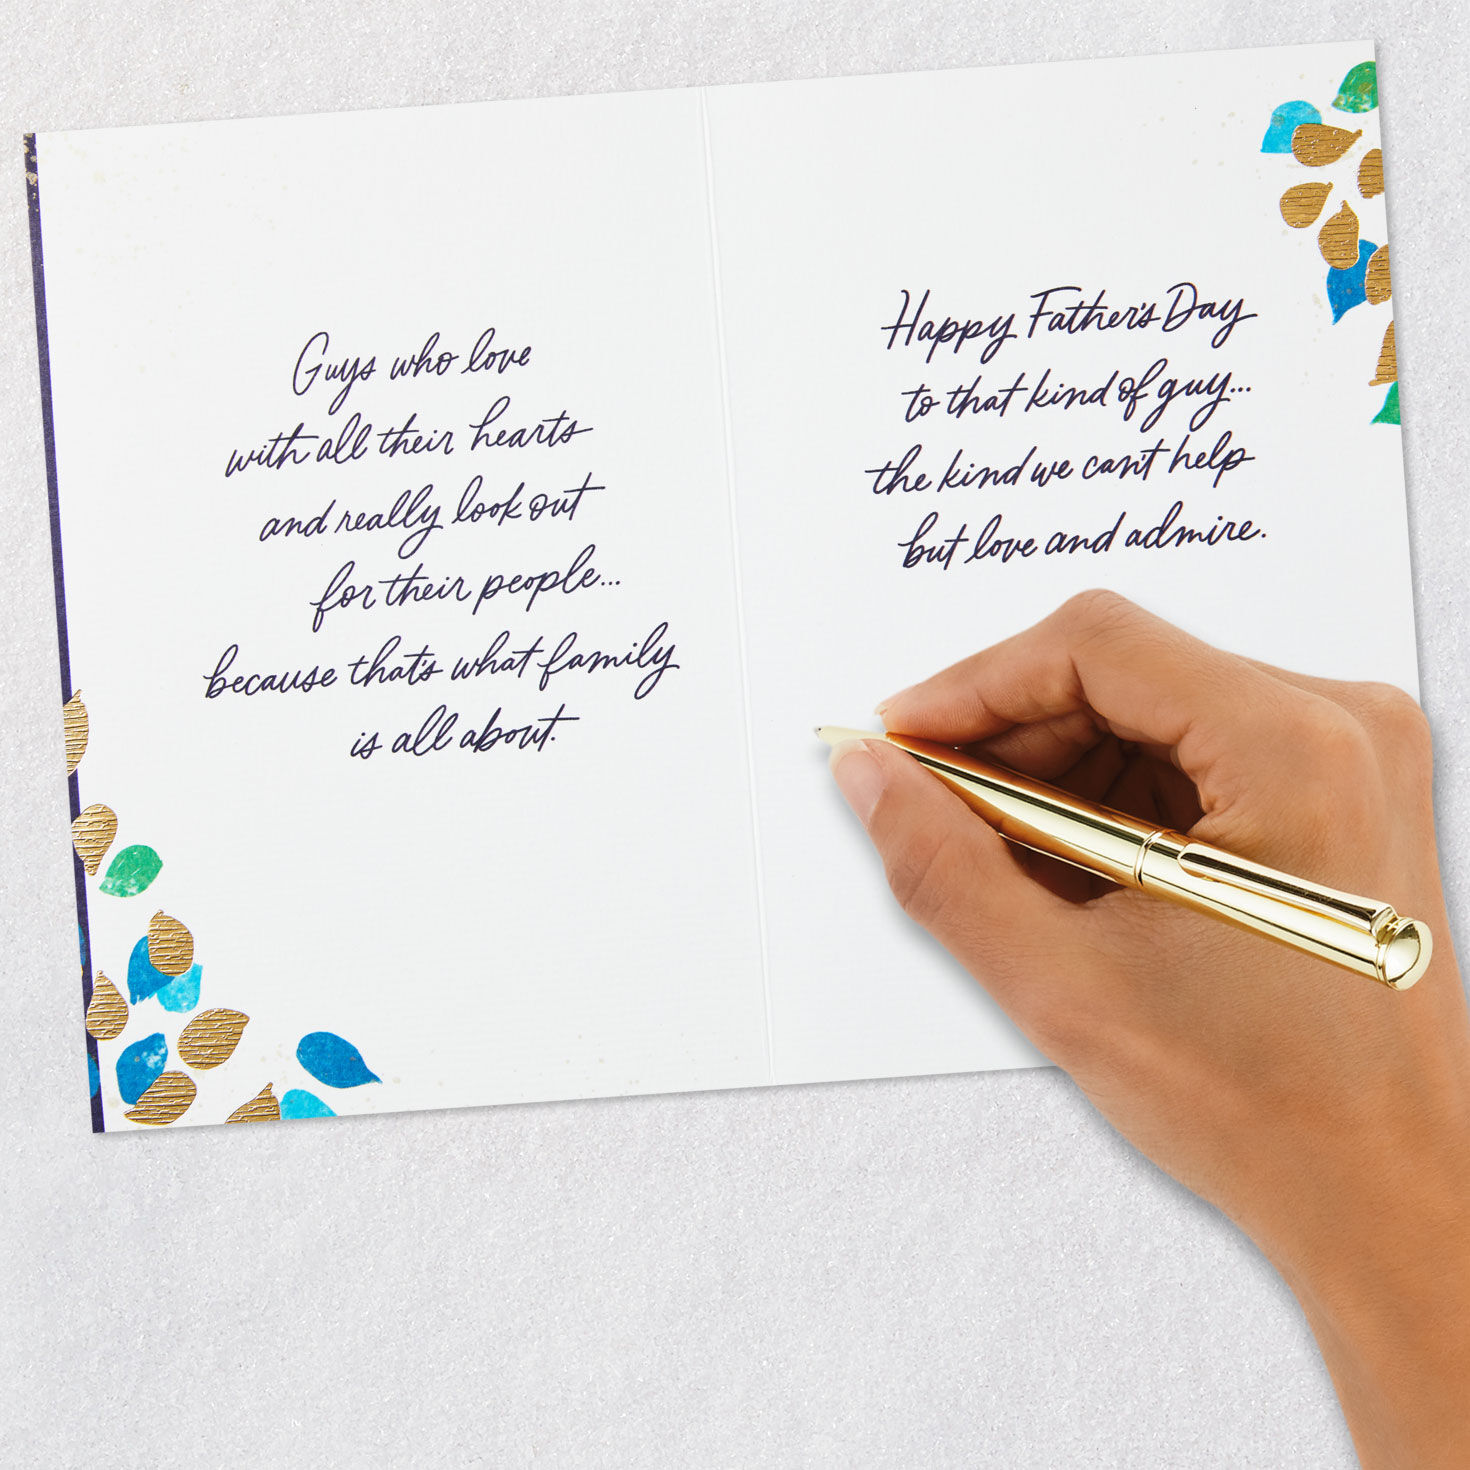 Guys who love
with all their hearts
and really look out
for their people...
because that's what family
is all about.
Happy Father's Day
to that kind of guy...
the kind we can't help
but love and admire.